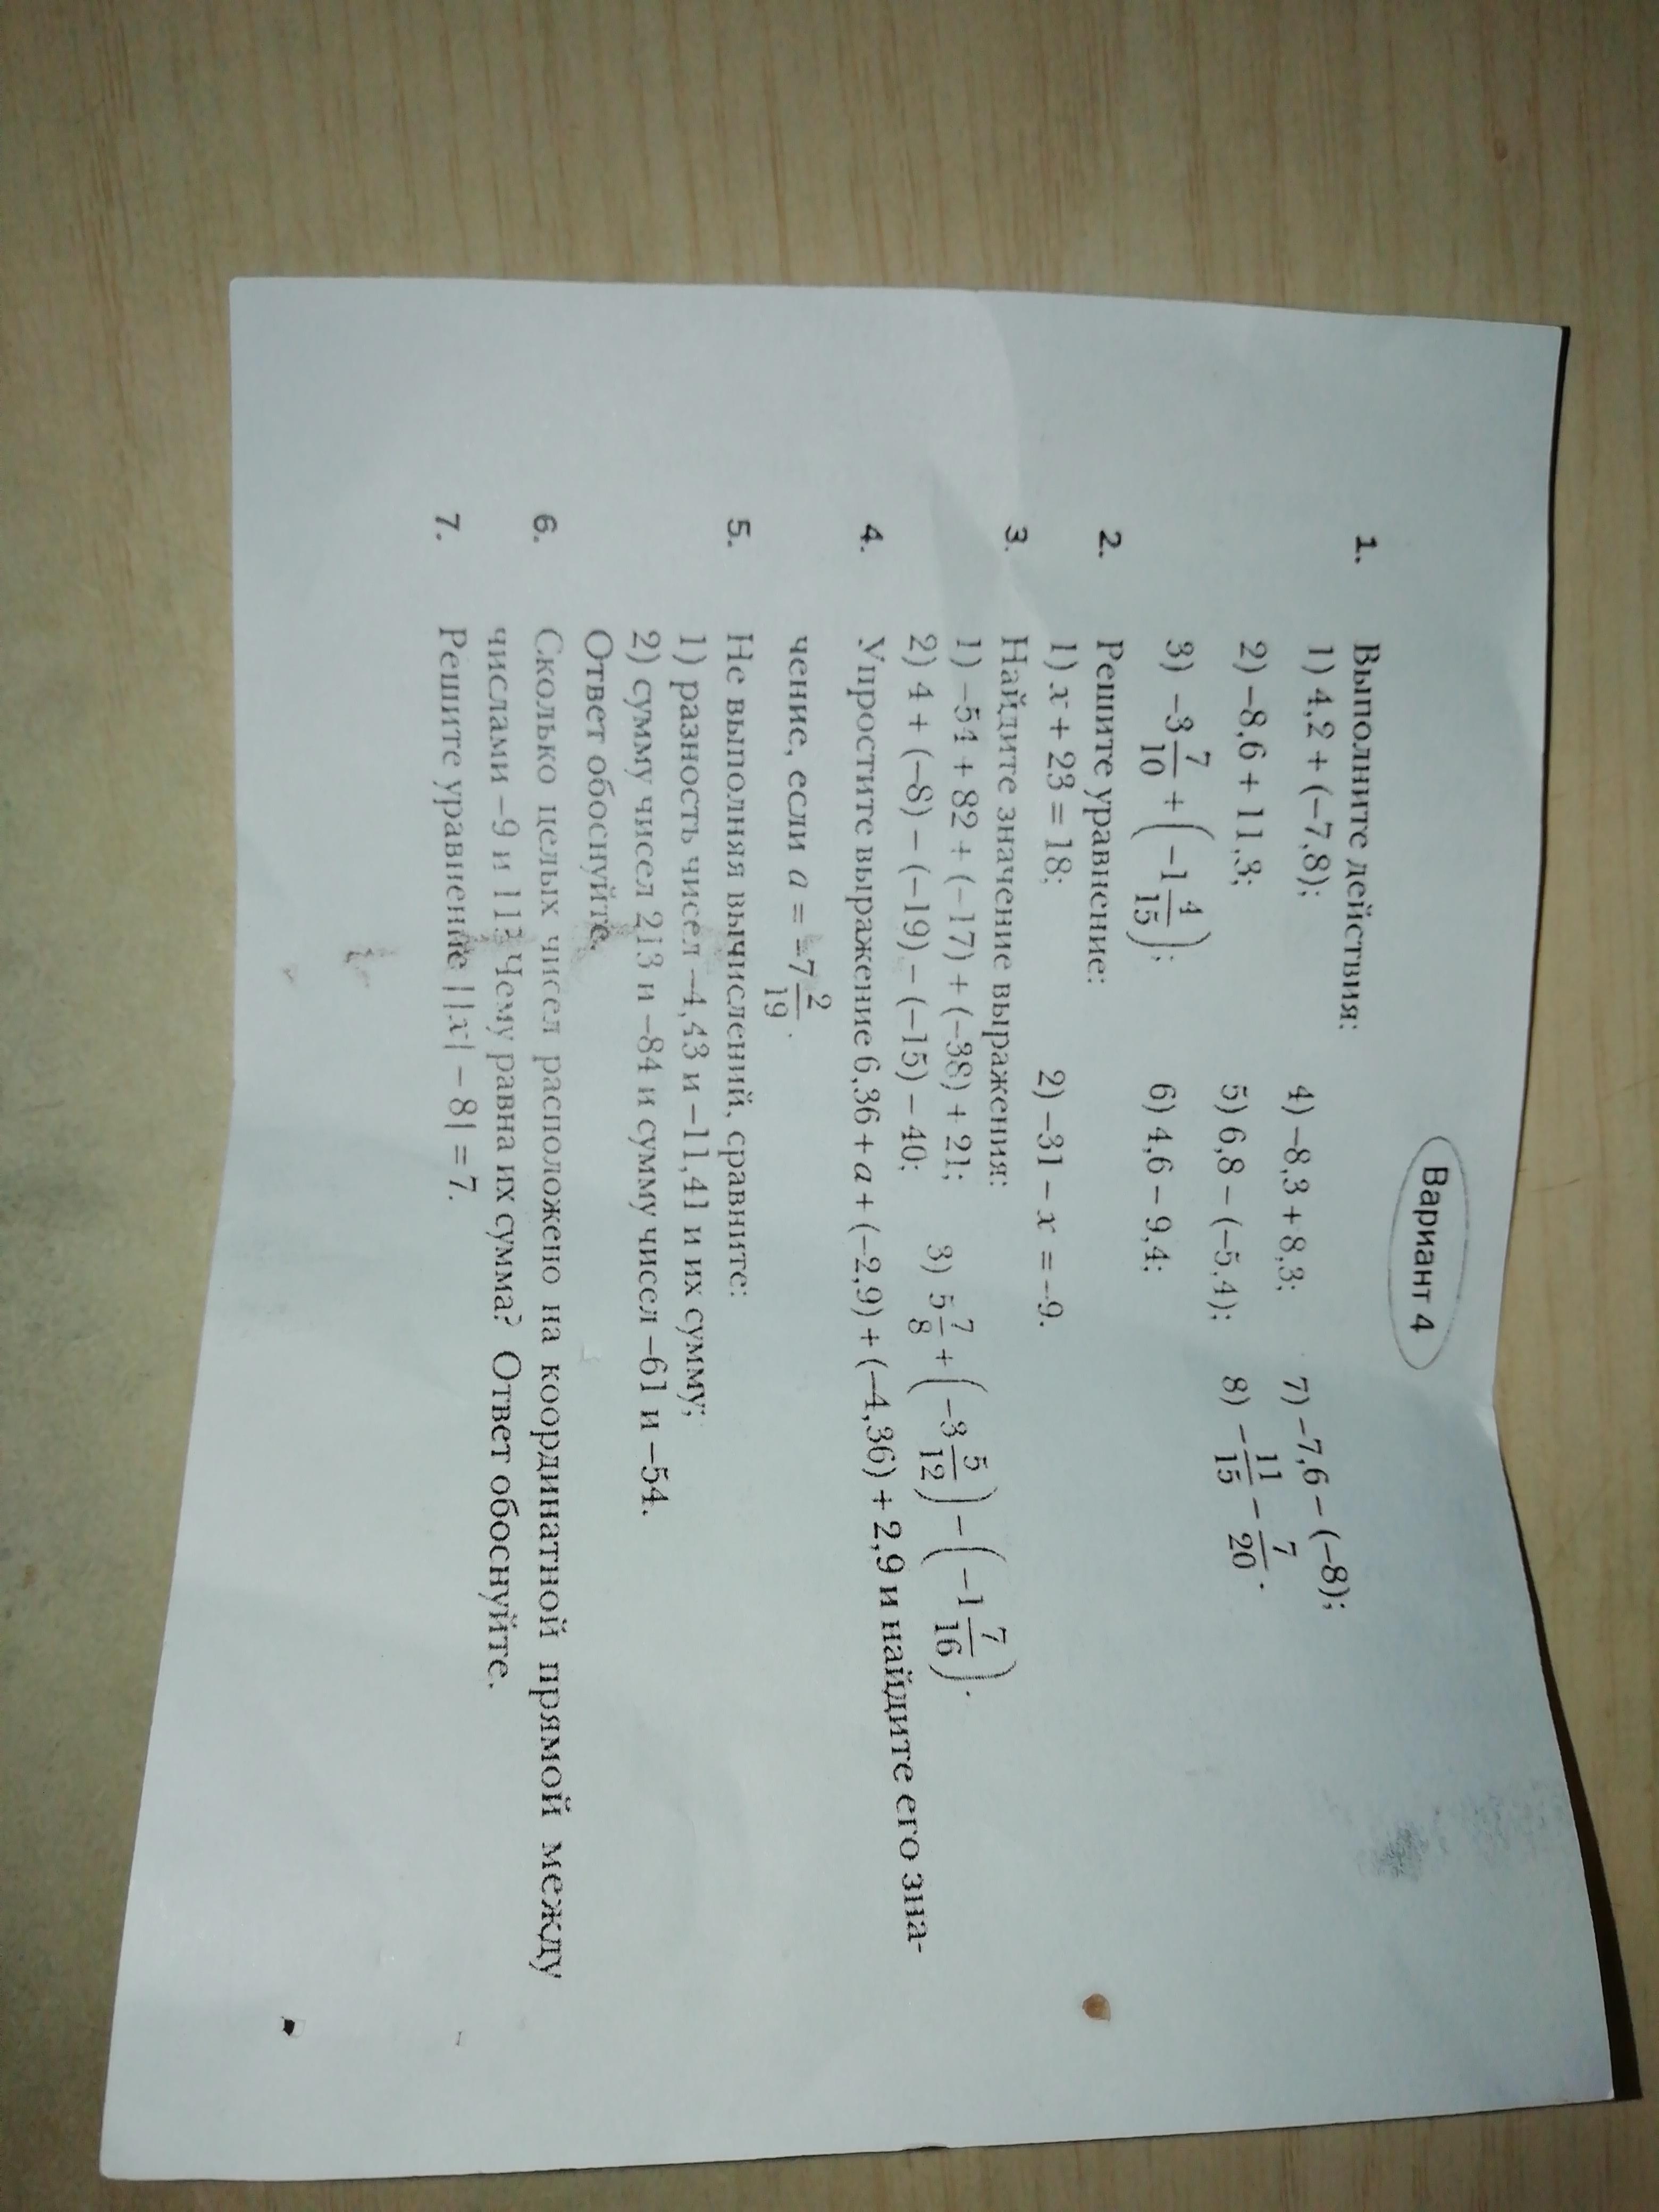 Вариант 4
1. Выполните действия:
1) 4,2 + (−7,8); 4) −8,3 + 8,3; 7) −7,6 − (−8);
2) −8,6 + 11,3; 5) 6,8 − (−5,4); 8) −11/15 − 7/20.
3) −3 7/10 + (−1 4/15); 6) 4,6 − 9,4;
2. Решите уравнение:
1) x + 23 = 18; 2) −31 − x = −9.
3. Найдите значение выражения:
1) −54 + 82 + (−17) + (−38) + 21;
2) 4 + (−8) − (−19) − (−15) − 40; 3) 5 7/8 + (−3 5/12) − (−1 7/16).
4. Упростите выражение 6,36 + a + (−2,9) + (−4,36) + 2,9 и найдите его зна-
чение, если a = −7 2/19.
5. Не выполняя вычислений, сравните:
1) разность чисел −4,43 и −11,41 и их сумму;
2) сумму чисел 213 и −84 и сумму чисел −61 и −54.
Ответ обоснуйте.
6. Сколько целых чисел расположено на координатной прямой между
числами −9 и 11? Чему равна их сумма? Ответ обоснуйте.
7. Решите уравнение ||x| − 8| = 7.